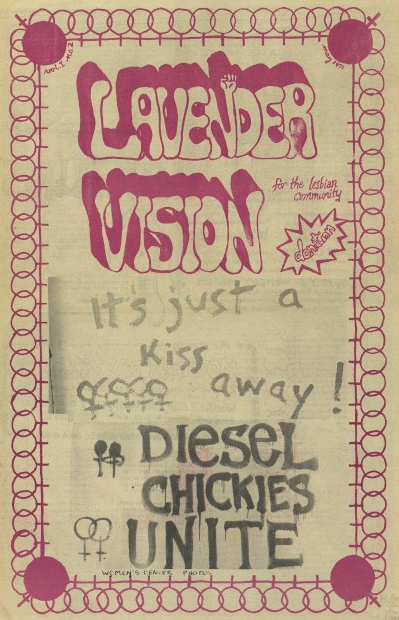 vol. 1 no. 2
may 1971
LAVENDER
VISION
for the lesbian
community
donation
It's just a
kiss
away!
DIESEL
CHICKIES
UNITE
WOMEN'S CENTER PHOTO